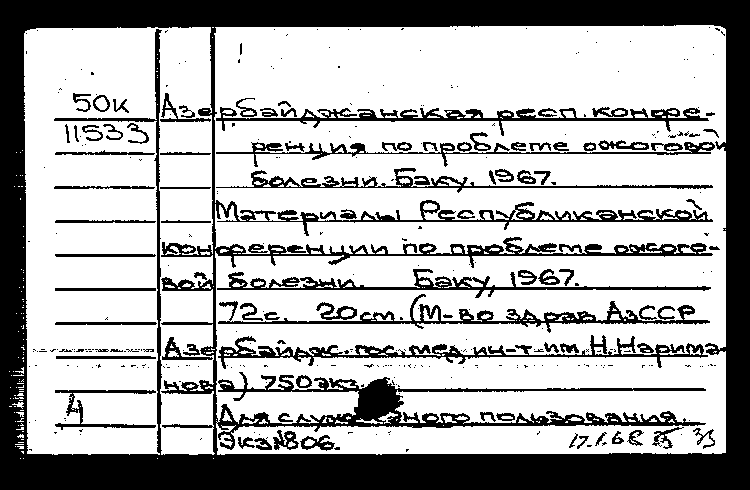 50к Азербайджанская респ. конфе-
11533
ренция по проблеме ожоговой
болезни. Баку. 1967.
Материалы Республиканской
конференции по проблеме ожого-
вой болезни. Баку, 1967.
72с. 20см. (М-во здрав АзССР
Азербайдж. гос. мед. ин-т им. Н. Нарима-
нова) 750экз.
Для служебного пользования.
Экз№806.